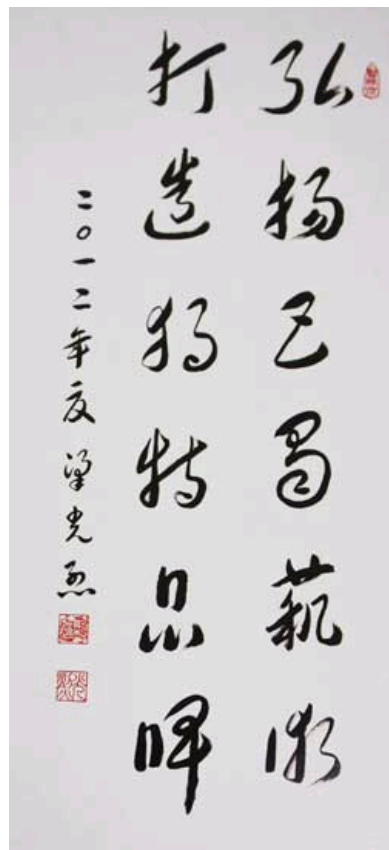 弘扬巴蜀藝術
打造独特品牌
二〇一二年夏 梁光烈